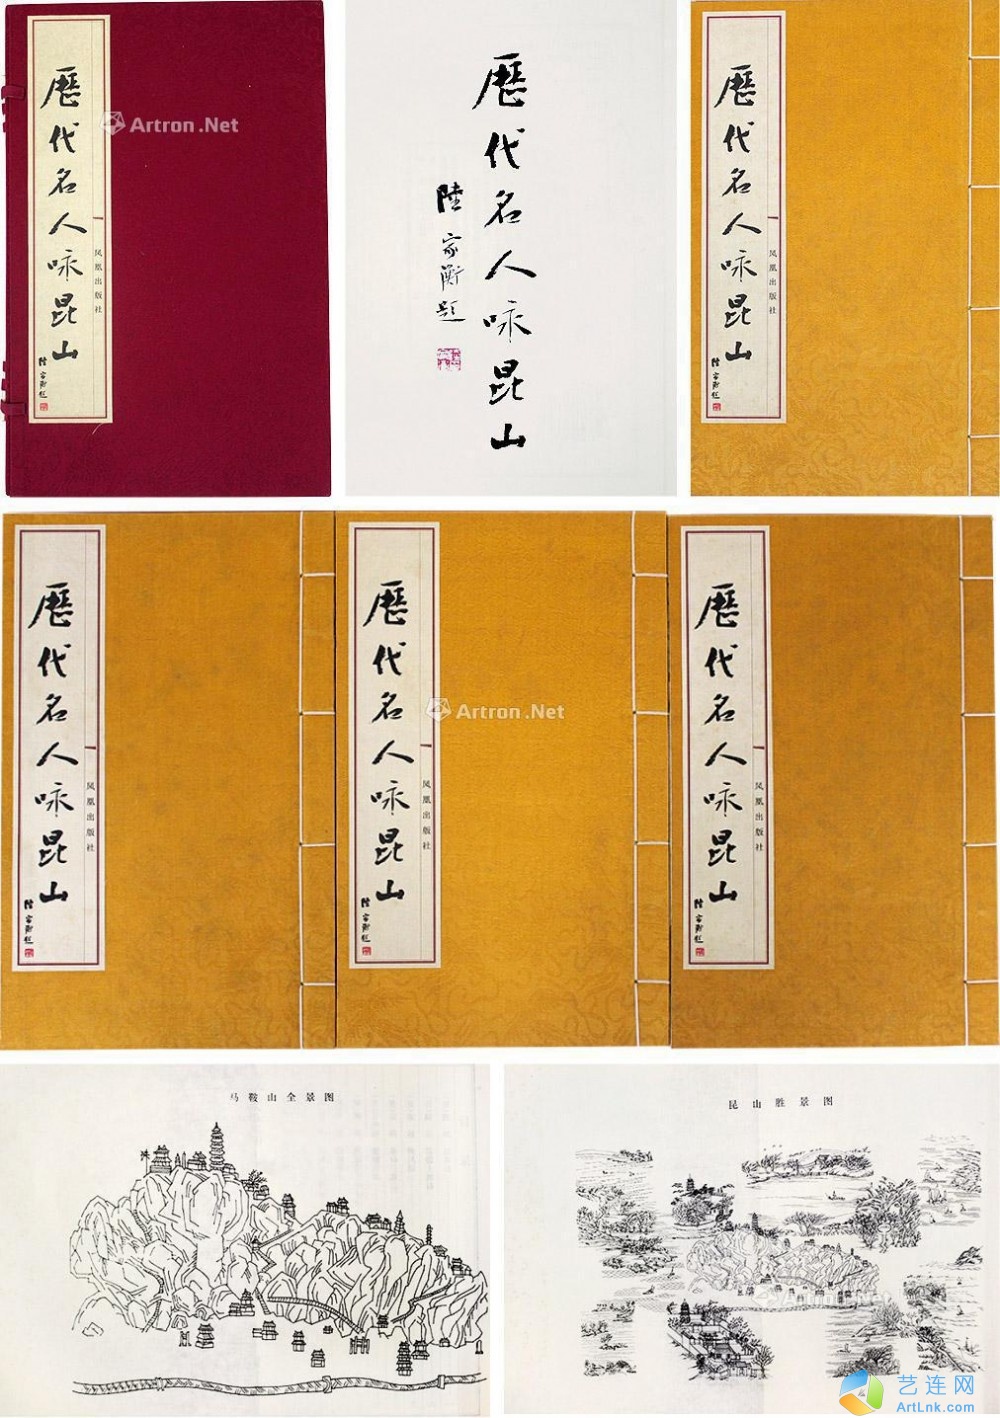 歷代名人咏昆山
陸家衡題
凤凰出版社
Artron.Net
歷代名人咏昆山
陸家衡題
歷代名人咏昆山
陸家衡題
凤凰出版社
歷代名人咏昆山
陸家衡題
凤凰出版社
歷代名人咏昆山
陸家衡題
凤凰出版社
Artron.Net
歷代名人咏昆山
陸家衡題
凤凰出版社
马鞍山全景图
昆山胜景图
Artron.Net
艺连网
ArtLnk.com